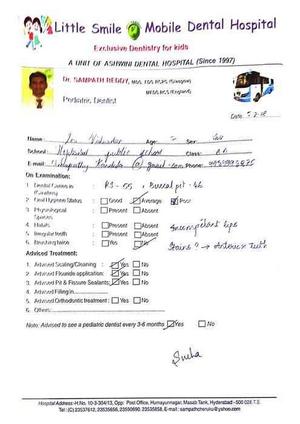 Little Smile Mobile Dental Hospital
Exclusive Dentistry for kids
A UNIT OF ASHWINI DENTAL HOSPITAL (Since 1997)
Dr. SAMPATH REDDY,
Pediatric Dentist
Date:
Name Age: Sex:
School: public school Class:
E-mail: @ gmail.com Phone:
On Examination:
1. Dental Caries in
2. Oral Hygiene Status : Good Average Poor
3. Physiological : Present Absent
Spaces
4. Habits : Present Absent Incompetent lips
5. Irregular teeth : Present Absent
6. Brushing twice : Yes No Stains ? → Anterior Teeth
Advised Treatment:
1. Advised Scaling/Cleaning : Yes No
2. Advised Fluoride application: Yes No
3. Advised Pit & Fissure Sealants: Yes No
4. Advised Filling in
5. Advised Orthodontic treatment : Yes No
6. Others:
Note: Advised to see a pediatric dentist every 3-6 months Yes No
Sneha
Hospital Address -H.No. 10-3-304/13, Opp: Post Office, Humayunnagar, Masab Tank, Hyderabad - 500 028 T.S.
Tel: (C) 23537612, 23535656, 23550690, 23535858, E-mail : sampathcheruku@yahoo.com